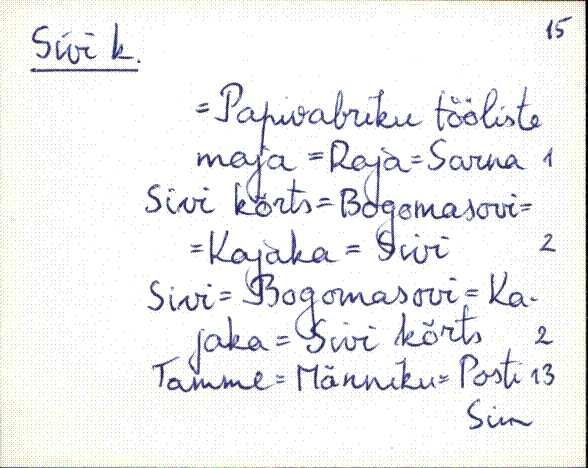 15
Sivi k.
= Papivabriku tööliste
maja = Raja = Sarna 1
Sivi kõrts = Bogomasovi =
= Kajaka = Sivi 2
Sivi = Bogomasovi = Ka-
jaka = Sivi kõrts 2
Tamme = Männiku = Posti 13